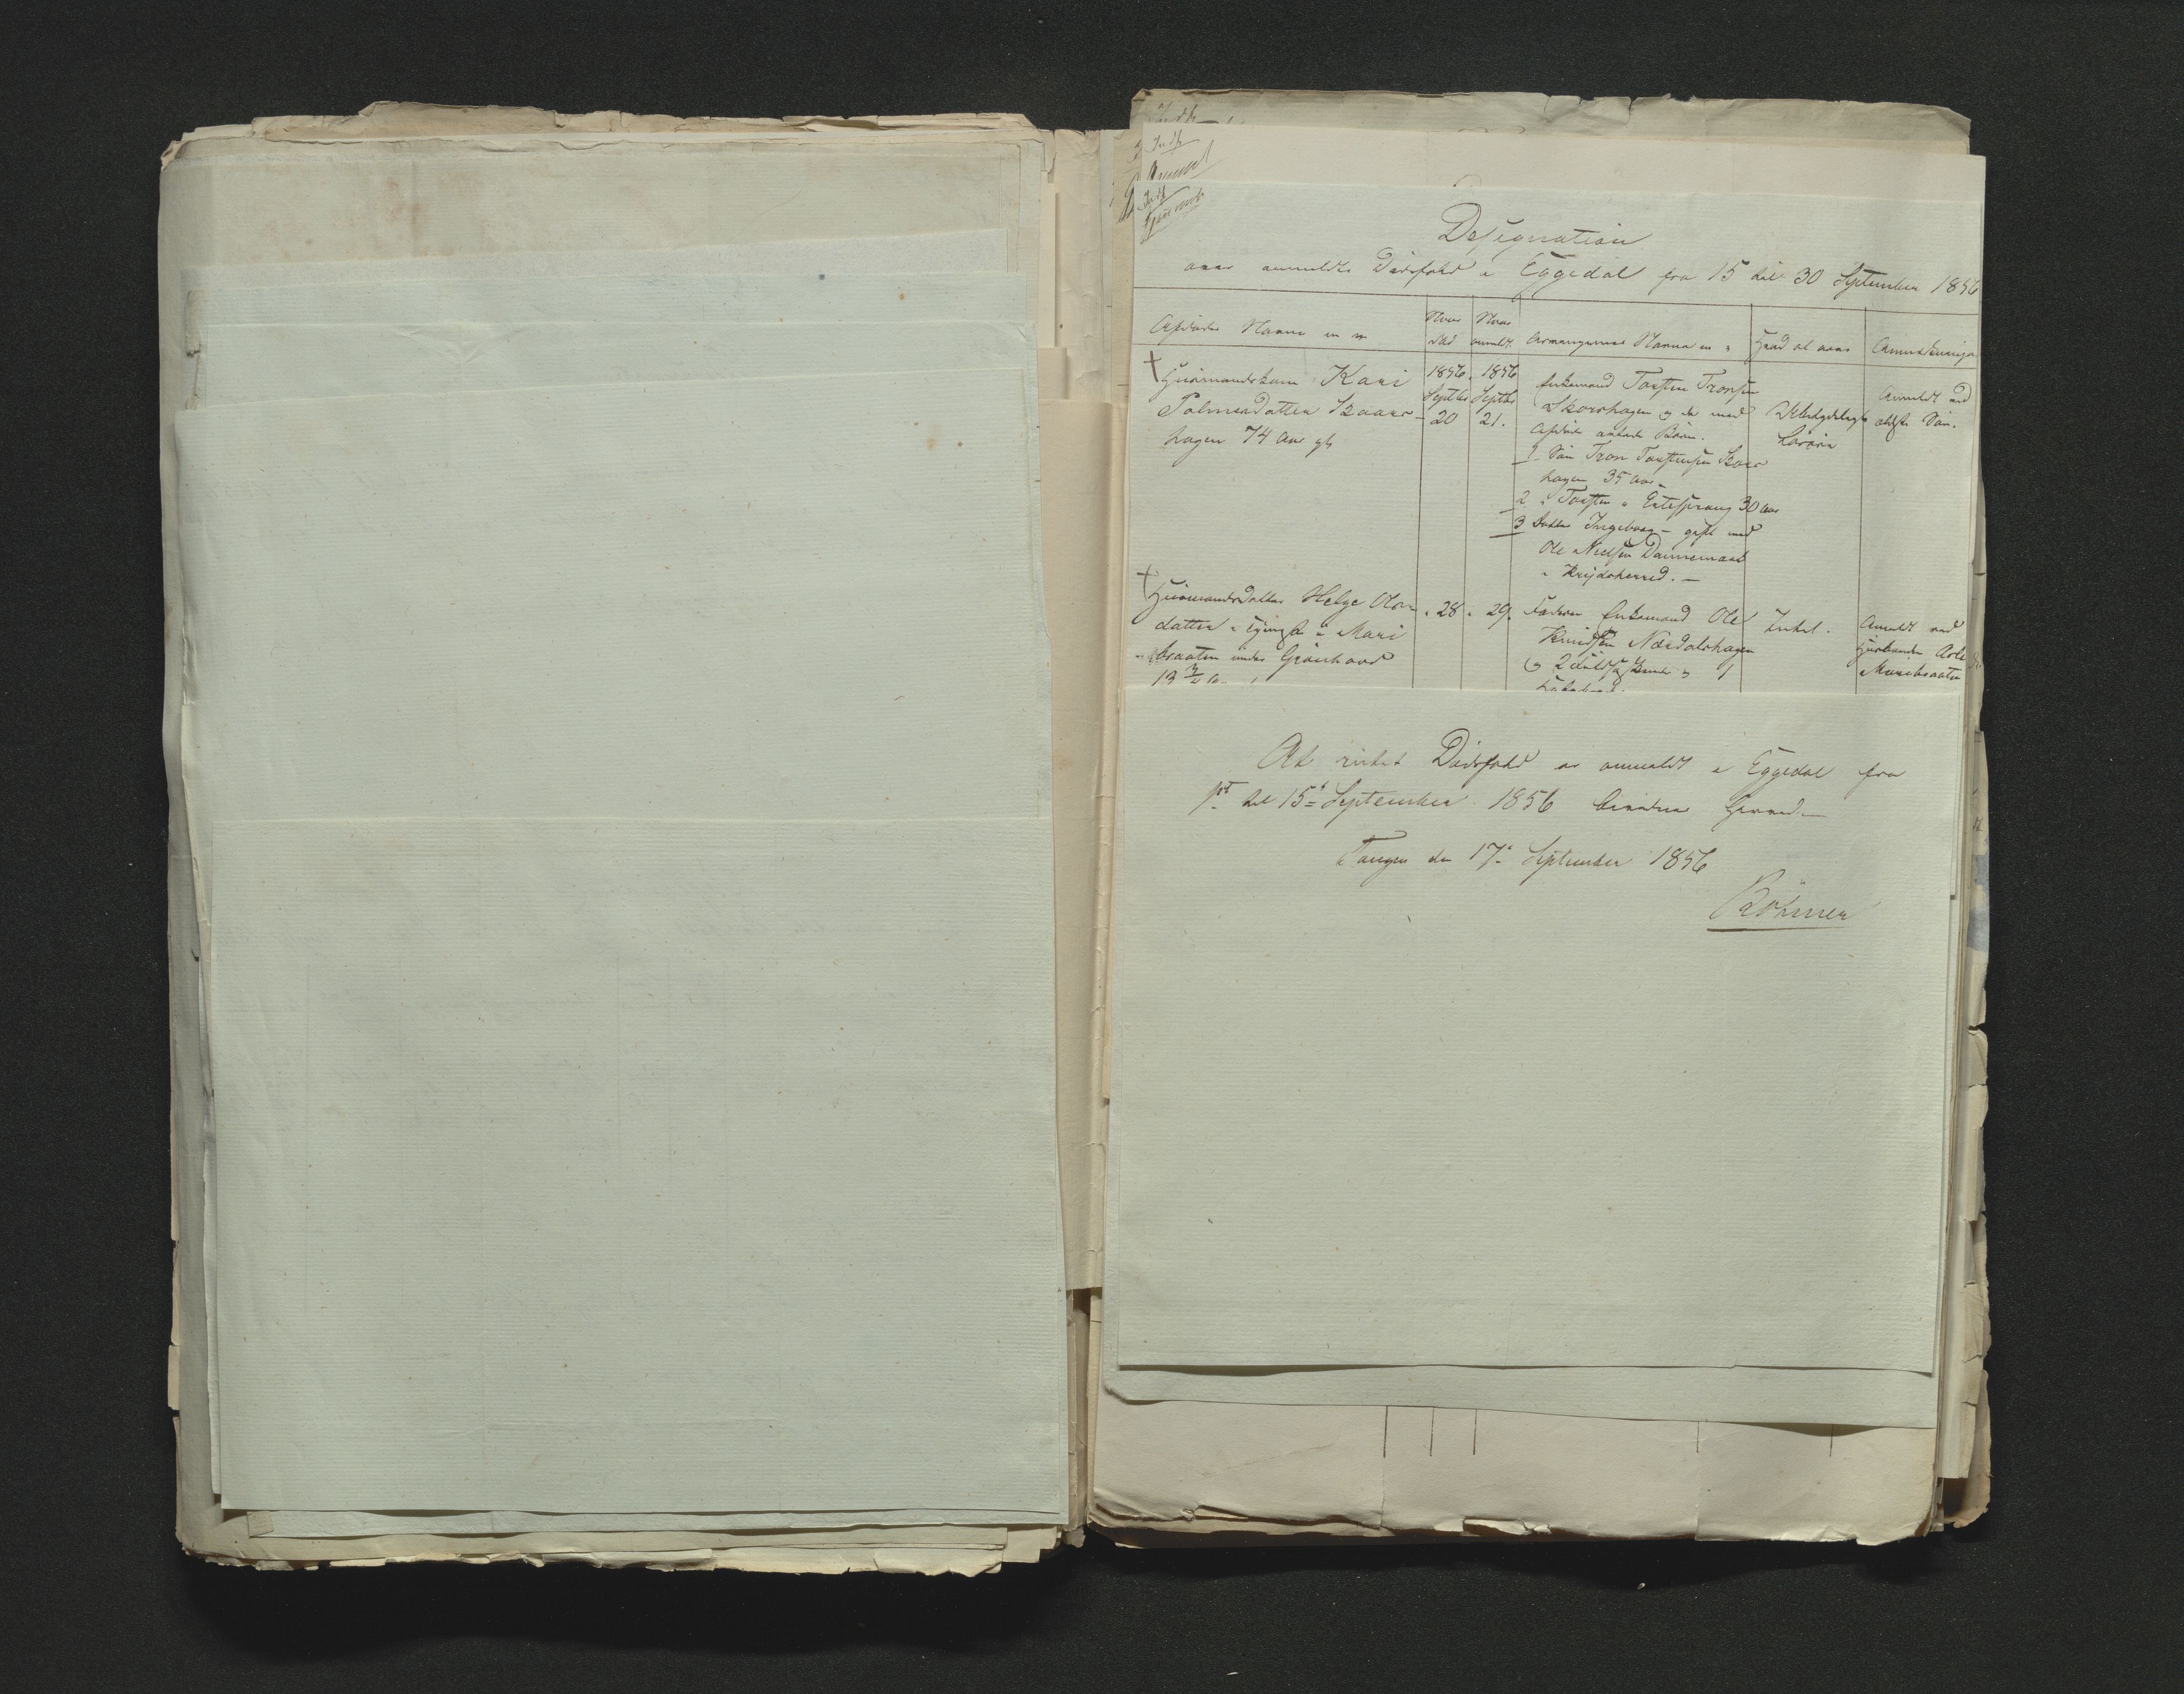 Indk
Indk
Designation
over anmeldte Dødsfald i Eggedal fra 15 til 30 September 1856
Afdødes Navn m m
Naar død
Naar anmeldt
Arvingernes Navne m m
Hvad at arve
Anmærkninger
† Huusmandskone Kari
Palmesdatter Skaars-
hagen 74 Aar gl
1856. Septbr 20
1856 Septbr 21.
Enkemand Torsten Tronsen
Skorshagen og de med
Afdøde avlede Børn.
1 Søn Tron Torstensen Skors
hagen 35 Aar
2 " Torsten " Entesprang 30 Aar
3 Datter Ingeborg – gift med
Ole Nielsen Dannemark
i Krydsherred. –
Anmeldt ved
ældste Søn.
† Huusmandsdatter Helge Ols-
datter i Mari
braaten under Grønhovd
13
" 28
" 29.
Faderen Enkemand Ole
Knudsen Nærdalshagen
Intet.
Anmeldt ved
Huusbonden
Maribraaten
At intet Dødsfald er anmeldt i Eggedal fra
1st til 15de September 1856 bevidnes herved. –
Tangen den 17de September 1856
Bøhmer